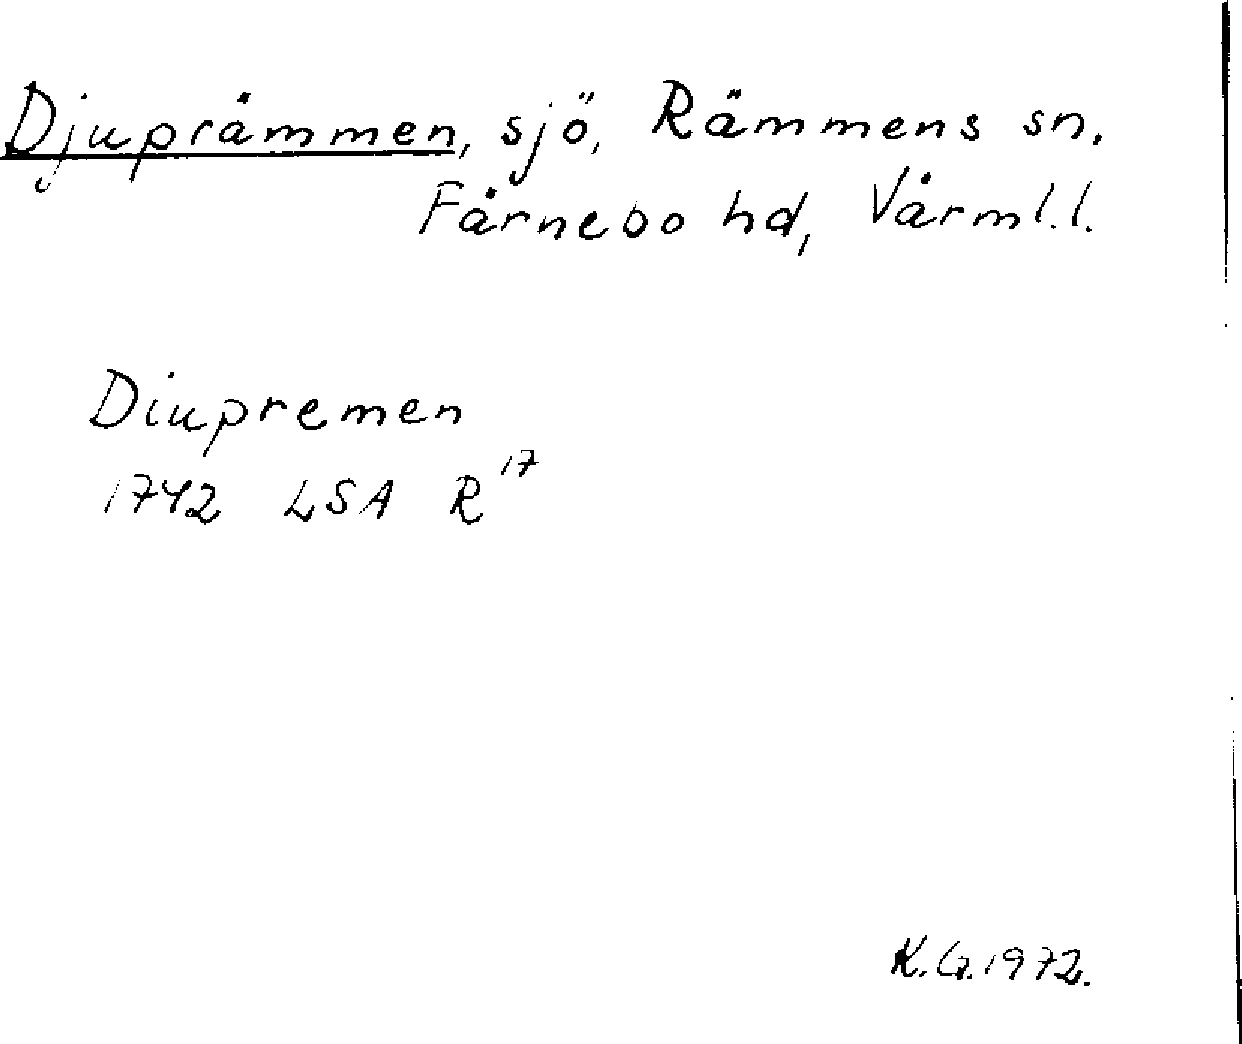 Djuprämmen, sjö, Rämmens sn.
Färnebo hd, Värml.l.
Diupremen
1742 LSA R 17
K.G. 1972.